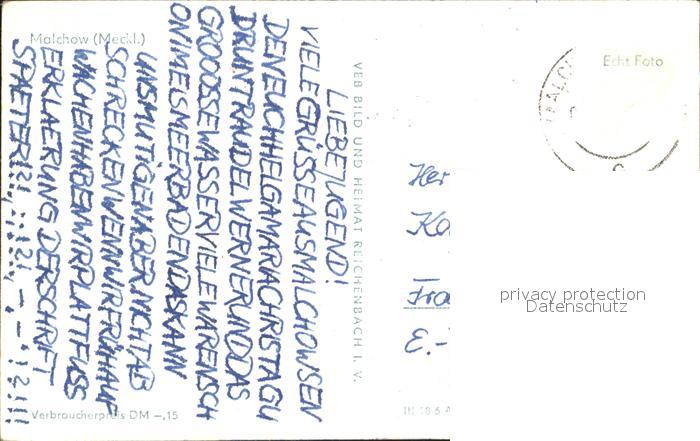 Malchow (Meckl.)
LIEBE JUGEND!
VIELEGRÜSSEAUSMALCHOWSEN
DENEUCHHELGAMARIACHRISTAGU
DRUNTRAUDELWERNERUNDDAS
GROOOSSEWASSERVIELEWARENSCH
ONIMEISMEERBADENDASKANN
UNSMUTIGENABERNICHTAB
SCHRECKENWENNWIRFRÜHAUF
WACHENHABENWIRPLATTFUSS
ERKLAERUNG DERSCHRIFT
SPAETER!?!
Verbraucherpreis DM -,15
VEB BILD UND HEIMAT REICHENBACH I. V.
Echt Foto
MALCH
Her
Ko
Fra
E.-
III 18 6 A
privacy protection
Datenschutz